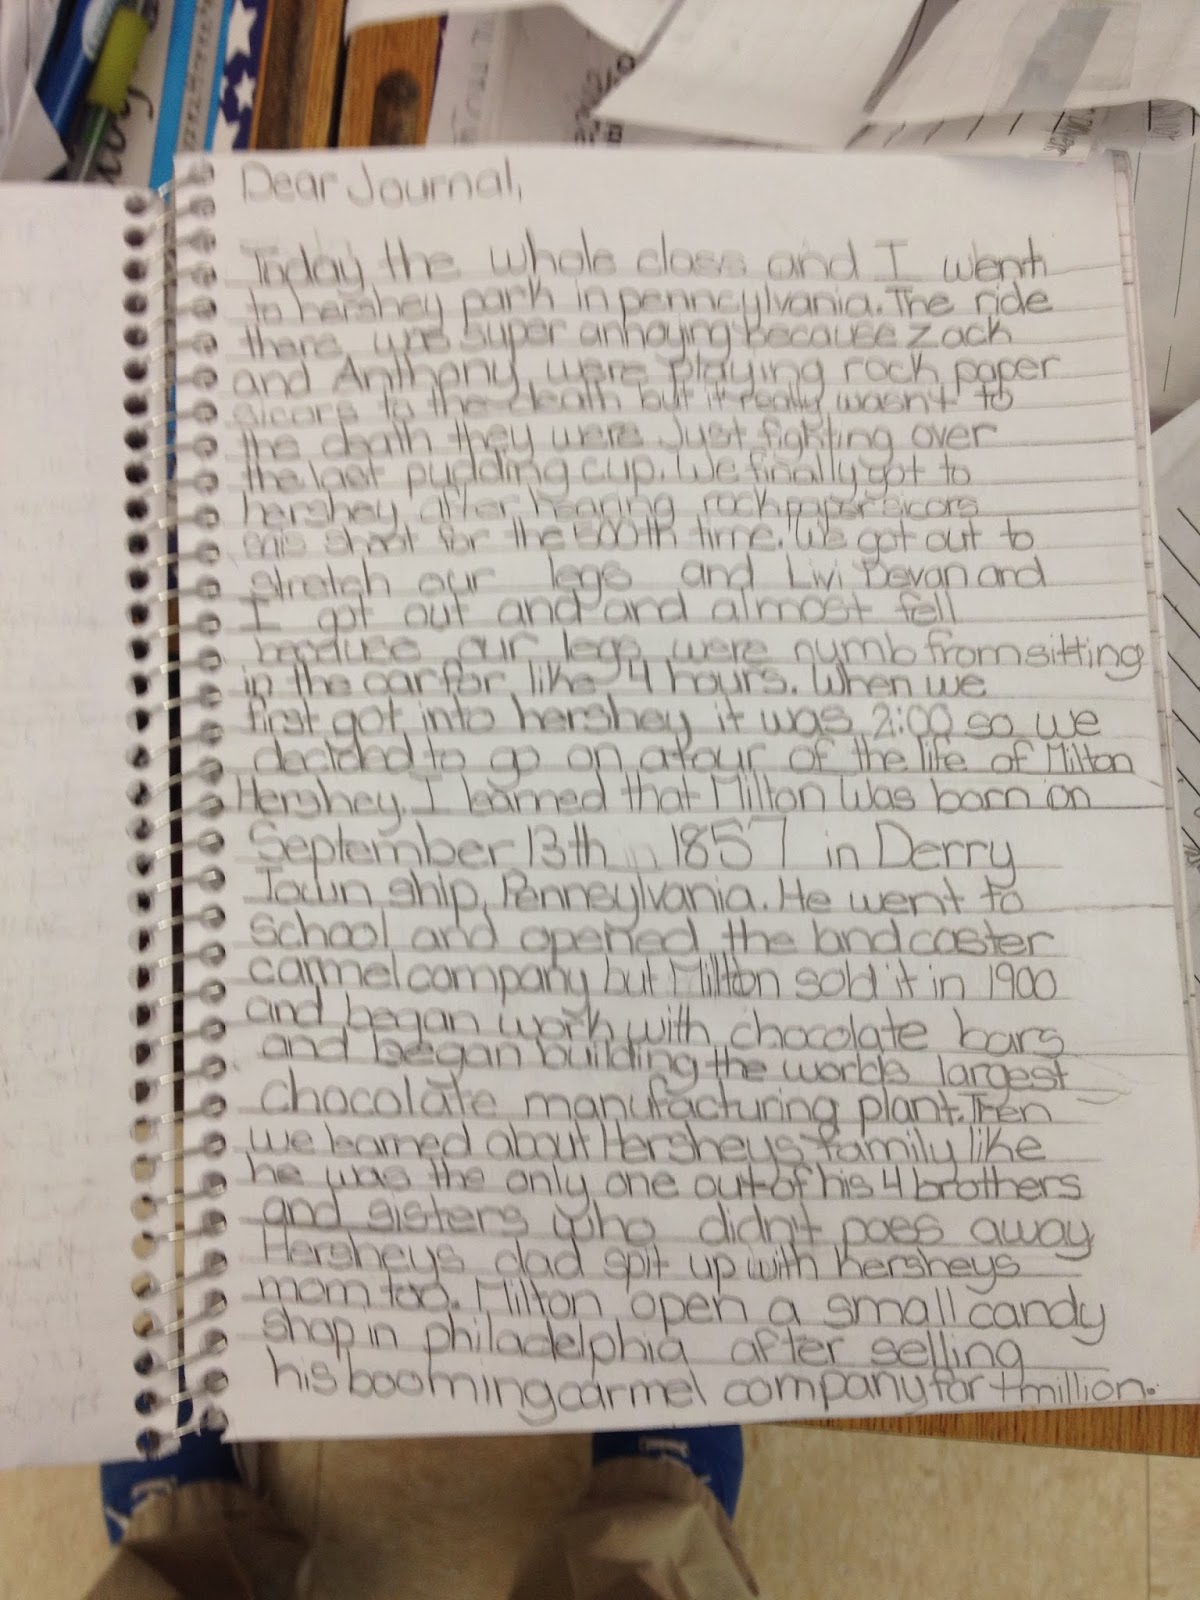 Dear Journal,
Today the whole class and I went
to hershey park in penncylvania. The ride
there was super annoying because Zack
and Anthony were playing rock paper
sicors to the death but it really wasn't to
the death they were Just fighting over
the last pudding cup. We finally got to
hershey after hearing rock paper sicors
shoot for the 500th time. We got out to
stretch our legs and Livi Devan and
I got out and and almost fell
because our legs were numb from sitting
in the car for like 4 hours. When we
first got into hershey it was 2:00 so we
decided to go on a tour of the life of Milton
Hershey. I learned that Milton was born on
September 13th in 1857 in Derry
Town ship, Pennsylvania. He went to
School and opened the landcaster
carmel company but Milton sold it in 1900
and began work with chocolate bars
and began building the worlds largest
chocolate manufacturing plant. Then
we learned about Hersheys family like
he was the only one out of his 4 brothers
and sisters who didn't pass away
Hersheys dad spit up with hersheys
mom too. Milton open a small candy
shop in philadelphia after selling
his booming carmel company for million.